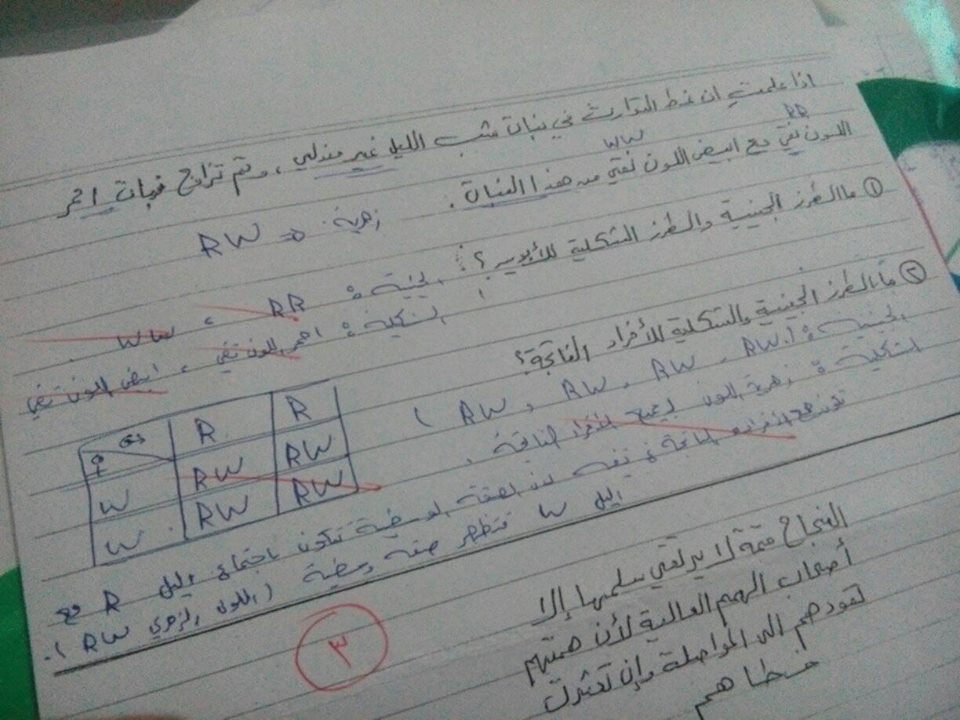 اذا علمت ان نمط التوارث في نبات شب الليل غير مندلي، وتم تزاوج نبات احمر
RR
اللون نقي مع ابيض اللون نقي من هذا النبات.
WW
زهرية ⇐ RW
① ما الطرز الجينية والطرز الشكلية للأبوين؟
الجينية: RR ، WW
الشكلية: احمر اللون نقي ، ابيض اللون نقي
② ما الطرز الجينية والشكلية للأفراد الناتجة؟
الجينية: (RW، RW، RW، RW)
الشكلية: زهرية اللون لجميع الأفراد الناتجة.
R R
♀
W RW RW
W RW RW
لأن الصفة الوسطية تتكون باجتماع اليل R مع
اليل W فتظهر صفه وسطية (اللون الزهري RW).
٣
النجاح قمة لا يرتقي سلمها إلا
أصحاب الهمم العالية لأن همتهم
تقودهم الى المواصلة وإن تعثرت
خطاهم